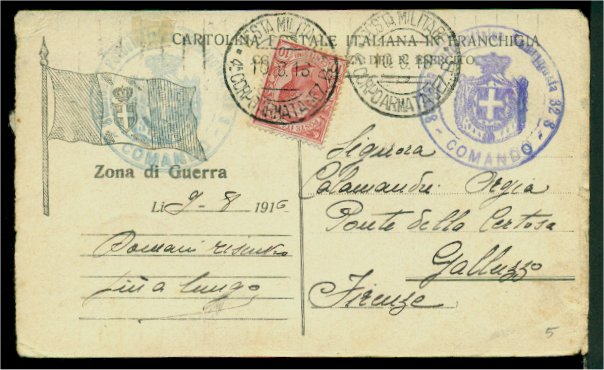 CARTOLINA POSTALE ITALIANA IN FRANCHIGIA
ESERCITO
POSTA MILITARE
4° CORPO ARMATA
10.8.16
POSTA MILITARE
4° CORPO ARMATA
COMANDO
COMANDO
Zona di Guerra
Li 9-8 1916
Domani
più a lungo
Signora
Calamandrei Argia
Ponte della Certosa
Galluzzo
Firenze
5